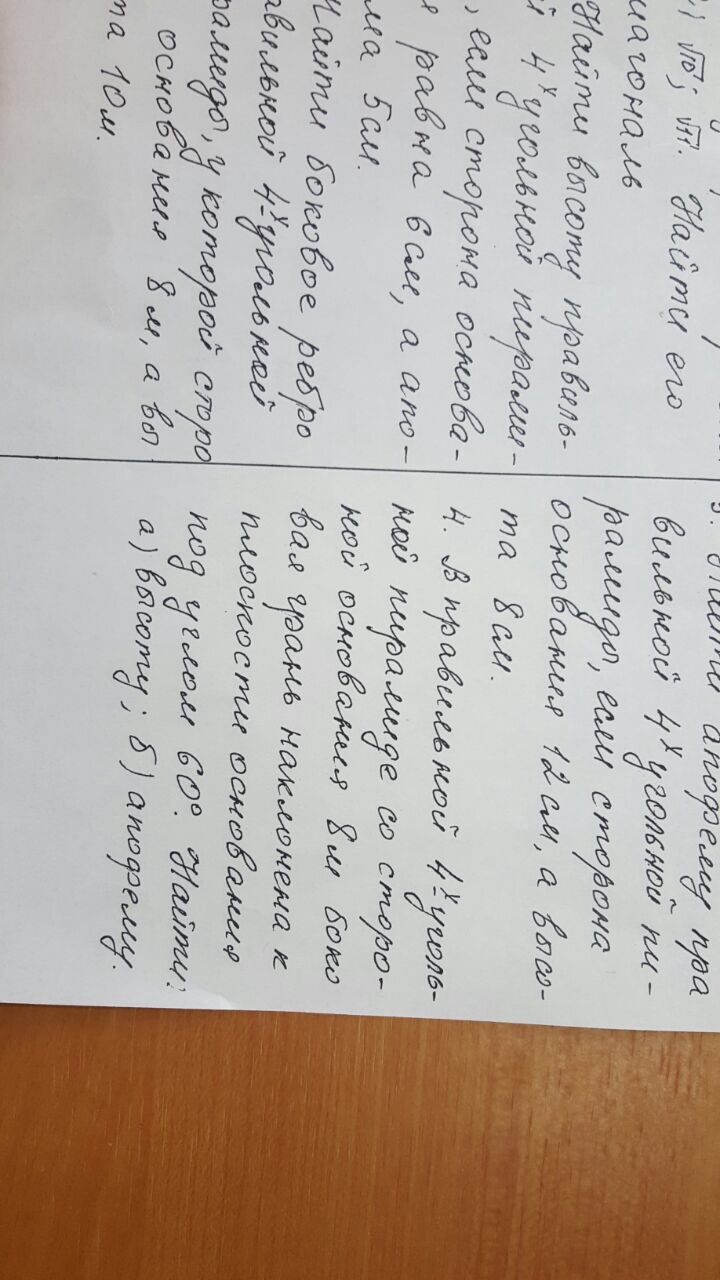 ; √10; √11. Найти его
иагональ
Найти высоту правиль-
й 4ˣ угольной пирами-
, если сторона основа-
я равна 6 см, а апо-
ма 5 см.
Найти боковое ребро
авильной 4ˣ угольной
рамиды, у которой сторо
основания 8 м, а вы
та 10 м.
3. Найти апофему пра
вильной 4ˣ угольной пи-
рамиды, если сторона
основания 12 см, а высо-
та 8 см.
4. В правильной 4ˣ уголь-
ной пирамиде со сторо-
ной основания 8 м боко
вая грань наклонена к
плоскости основания
под углом 60°. Найти:
а) высоту; б) апофему.